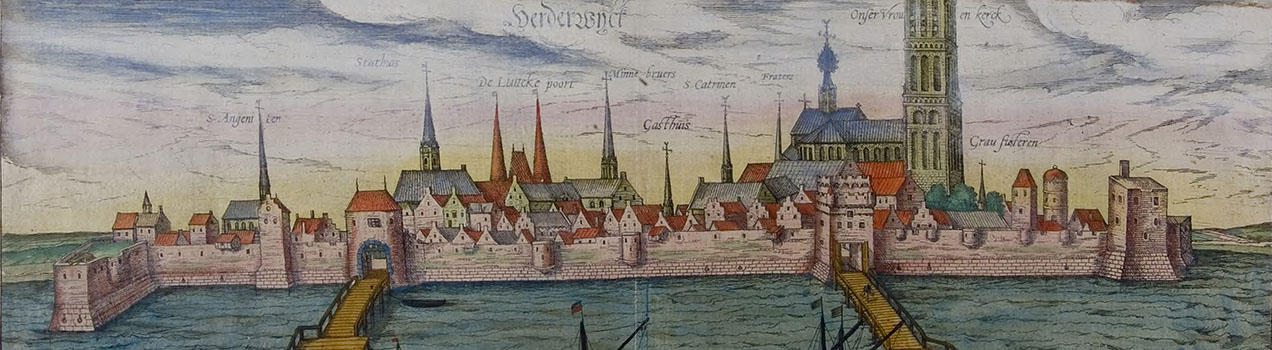 Herderwyck
Onser Vrou en kerck
Stathus
De Luttcke poort
Minne bruers
S Catrinen
Fraters
S. Angeni ten
Gasthuis
Grau susteren